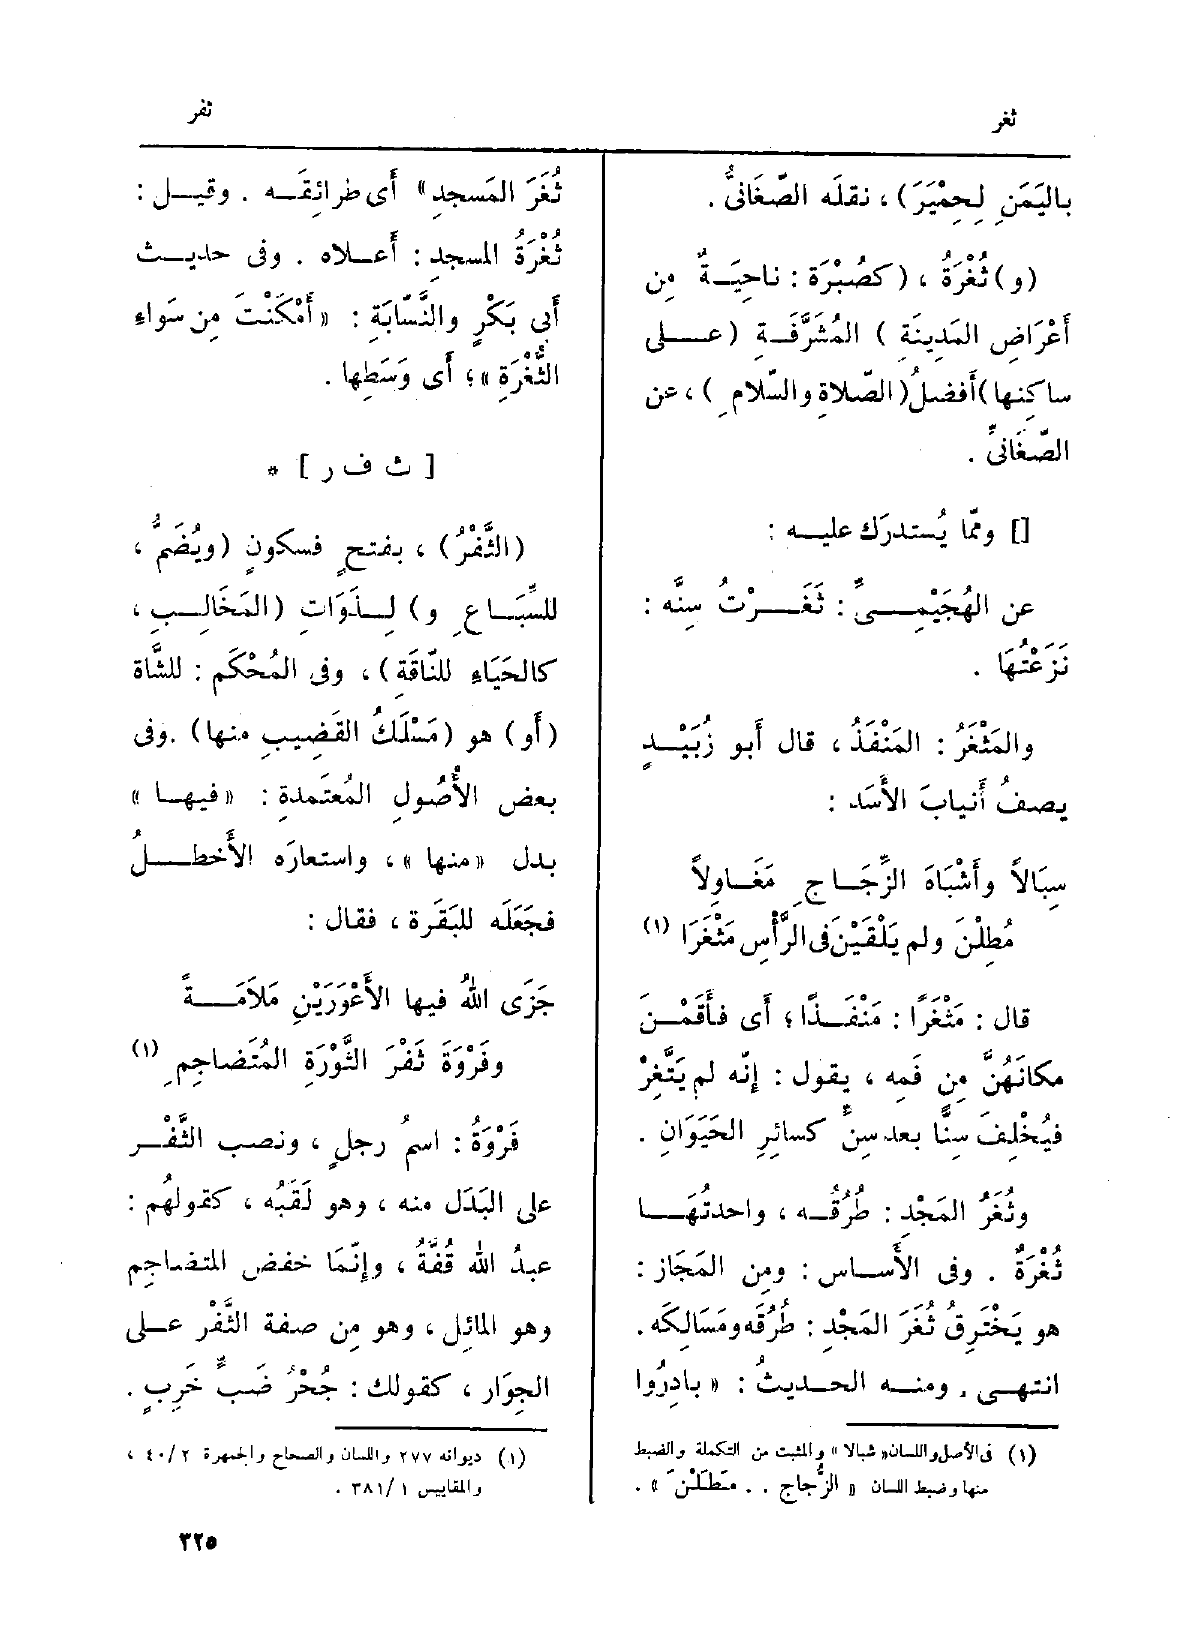 ثغر
ثفر
باليَمَنِ لِحِمْيَرَ) ، نقلَه الصّغَانيُّ .
(و) ثُغْرَةُ ، (كصُبْرَة : ناحِيَــةٌ مِن
أَعْرَاضِ المَدِينَةِ ) المُشَرَّفَــةِ (عــلى
ساكِنها) أَفضلُ (الصّلاة والسّلام ِ ) ، عن
الصّغَانيِّ .
[] وممّا يُستدرَك عليــه :
عن الهُجَيْمِــيِّ : ثَغَــرْتُ سِنَّه :
نَزَعْتُهَا .
والمَثْغَرُ : المَنْفَذُ ، قال أَبو زُبَيْــدٍ
يصفُ أَنيابَ الأَسَد :
سِبَالاً وأَشْبَاهَ الزِّجَــاج ِ مَغَــاوِلاً
مُطِلْنَ ولم يَلْقَيْنَ فى الرَّأْسِ مَثْغَرَا (١)
قال : مَثْغَرًا : مَنْفَــذًا ؛ أَى فأَقَمْــنَ
مكانَهُنَّ مِن فَمِه ، يقول : إِنّه لم يَتَّغِرْ
فيُخْلِفَ سِنًّا بعد سِنٍّ كسائِرِ الحَيَوَانِ .
وثُغَرُ المَجْدِ : طُرُقُــه ، واحدتُهَــا
ثُغْرَةٌ . وفى الأَســاس : ومِن المَجَاز :
هو يَخْتَرِقُ ثُغَرَ المَجْدِ : طُرُقَه ومَسَالِكَه .
انتهــى . ومنــه الحــديثُ : « بادِرُوا
(١) فى الأصل واللسان « شبالا » والمثبت من التكملة والضبط
منها وضبط اللسان « الزُّجاج . . مَتَطَلْنَ » .
ثُغَرَ المَسجدِ » أَى طرائقَــه . وقيــل :
ثُغْرَةُ المسجدِ : أَعــلاه . وفى حديــث
أَبى بَكْرٍ والنَّسّابَةِ : « أَمْكَنْتَ مِن سَوَاءِ
الثُّغْرَةِ » ؛ أَى وَسَطِها .
[ ث ف ر ] *
(الثَّفْرُ) ، بفتحٍ فسكونٍ (ويُضَمُّ ،
للسِّبَــاع ِ و) لِــذَوَاتِ (المَخَالِــبِ ،
كالحَيَاءِ للنّاقَةِ) ، وفى المُحْكَم : للشَّاة
(أَو) هو (مَسْلَكُ القَضِيبِ منها) . وفى
بعض الأُصُولِ المُعتَمدةِ : « فيهــا »
بدل « منها » ، واستعارَه الأَخطــلُ
فجَعَلَه للبَقَرة ، فقال :
جَزَى اللهُ فيها الأَعْوَرَيْنِ مَلاَمَــةً
وفَرْوَةَ ثَفْرَ الثَّوْرَةِ المُتَضاجِم ِ (١)
فَرْوَةُ : اسمُ رجلٍ ، ونصب الثَّفْــر
على البَدَل منه ، وهو لَقَبُه ، كقولهُم :
عبدُ اللهِ قُفَّةُ ، وإِنّمَا خفض المتضاجِم
وهو المائِل ، وهو مِن صفة الثَّفْر عــلى
الجِوَار ، كقولك : جُحْرُ ضَبٍّ خَرِبٍ .
(١) ديوانه ٢٧٧ واللسان والصحاح والجمهرة ٢/ ٤٠ ،
والمقاييس ١ /٣٨١ .
٣٢٥